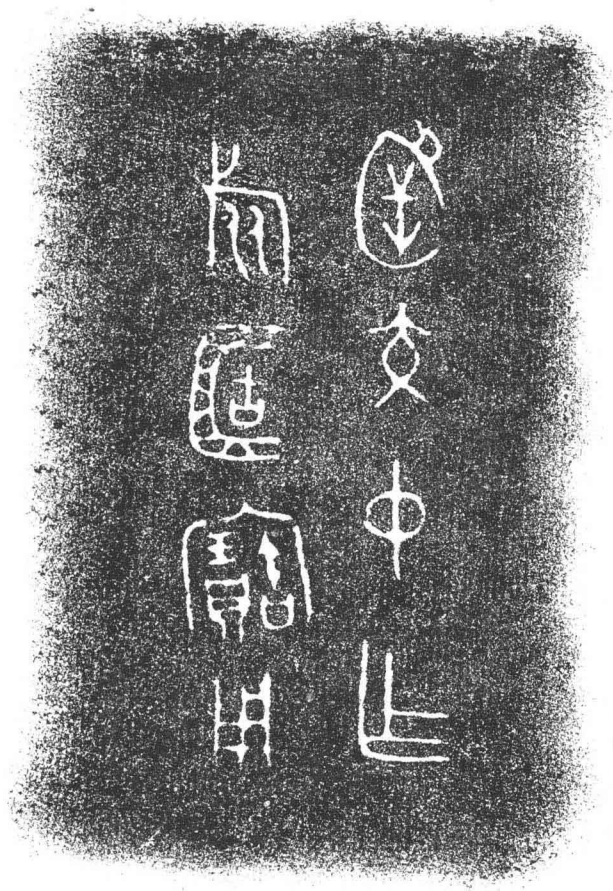 交中乍
旅簠寶用